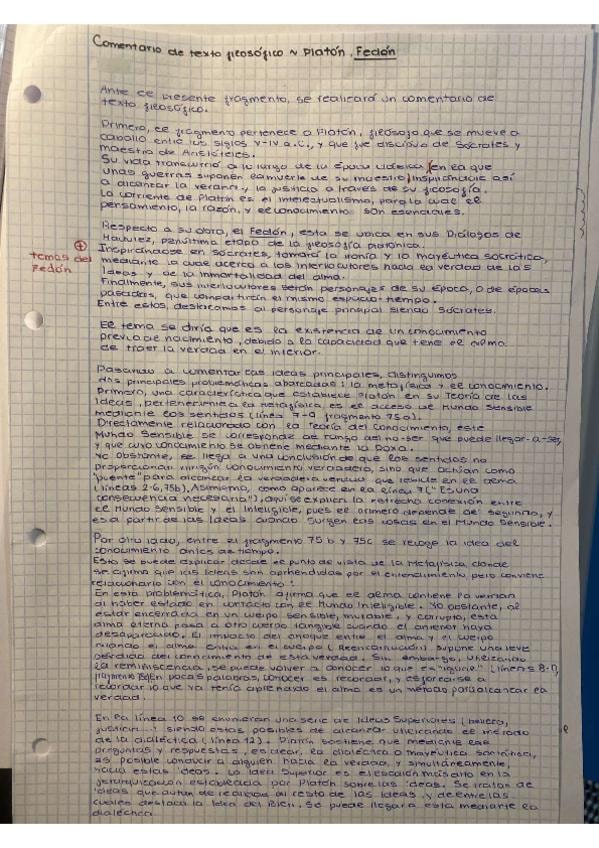 Comentario de texto filosófico ~ Platón, Fedón
Ante el presente fragmento, se realizará un comentario de
texto filosófico.
Primero, el fragmento pertenece a Platón, filósofo que se mueve a
caballo entre los siglos V-IV a.C., y que fue discípulo de Sócrates y
maestro de Aristóteles.
Su vida transcurrió a lo largo de la época clásica, en la que
unas guerras suponen la muerte de su maestro, inspirándole así
a alcanzar la verdad, y la justicia a través de su filosofía.
La corriente de Platón es el intelectualismo, para la cual el
pensamiento, la razón, y el conocimiento son esenciales.
Respecto a su obra, el Fedón, esta se ubica en sus Diálogos de
Madurez, penúltima etapa de la filosofía platónica.
+ temas del Fedón
Inspirándose en Sócrates, tomará la ironía y la mayéutica socrática,
mediante la cual acerca a los interlocutores hacia la verdad de las
Ideas y de la inmortalidad del alma.
Finalmente, sus interlocutores serán personajes de su época, o de épocas
pasadas, que compartirán el mismo espacio-tiempo.
Entre estos, destacamos al personaje principal siendo Sócrates.
El tema se diría que es la existencia de un conocimiento
previo al nacimiento, debido a la capacidad que tiene el alma
de traer la verdad en el interior.
Pasando a comentar las ideas principales, distinguimos
dos principales problemáticas abarcadas: la metafísica y el conocimiento.
Primero, una característica que establece Platón en su Teoría de las
Ideas, perteneciente a la metafísica, es el acceso al Mundo Sensible
mediante los sentidos (línea 7-9 fragmento 75a).
Directamente relacionado con la Teoría del Conocimiento, este
Mundo Sensible se corresponde al rango del no-ser que puede llegar-a-ser,
y que cuyo conocimiento se obtiene mediante la Doxa.
No obstante, se llega a una conclusión de que los sentidos no
proporcionan ningún conocimiento verdadero, sino que actúan como
"puente" para alcanzar la verdadera verdad que reside en el alma
(líneas 2-6, 75b). Asimismo, como aparece en la línea 7 ("Es una
consecuencia necesaria"), aquí se explica la estrecha conexión entre
el Mundo Sensible y el Inteligible, pues el primero depende del segundo, y
es a partir de las Ideas cuando surgen las cosas en el Mundo Sensible.
Por otro lado, entre el fragmento 75b y 75c se recoge la idea del
conocimiento antes de tiempo.
Esto se puede explicar desde el punto de vista de la Metafísica, donde
se afirma que las Ideas son aprehendidas por el entendimiento, pero conviene
relacionarlo con el conocimiento:
En esta problemática, Platón afirma que el alma contiene la verdad
al haber estado en contacto con el Mundo Inteligible. No obstante, al
estar encerrada en un cuerpo sensible, mutable, y corrupto, esta
alma eterna pasa a otro cuerpo tangible cuando el anterior haya
desaparecido. El impacto del choque entre el alma y el cuerpo
cuando el alma entra en el cuerpo (Reencarnación) supone una leve
pérdida del conocimiento de esta verdad. Sin embargo, utilizando
la reminiscencia, se puede volver a conocer lo que es "igual" (líneas 8-9,
fragmento 75b). En pocas palabras, conocer es recordar, y esforzarse a
recordar lo que ya tenía aprendido el alma es un método para alcanzar la
verdad.
En la línea 10 se enumeran una serie de Ideas Superiores (belleza,
justicia...) siendo estas posibles de alcanzar utilizando el método
de la dialéctica (línea 12). Platón sostiene que mediante las
preguntas y respuestas, es decir, la dialéctica o mayéutica socrática,
es posible conducir a alguien hacia la verdad, y simultáneamente,
hacia estas ideas. La Idea Superior es el escalón más alto en la
jerarquización establecida por Platón sobre las ideas. Se tratan de
ideas que dotan de realidad al resto de las Ideas, y de entre las
cuales destaca la Idea del Bien. Se puede llegar a esta mediante la
dialéctica.